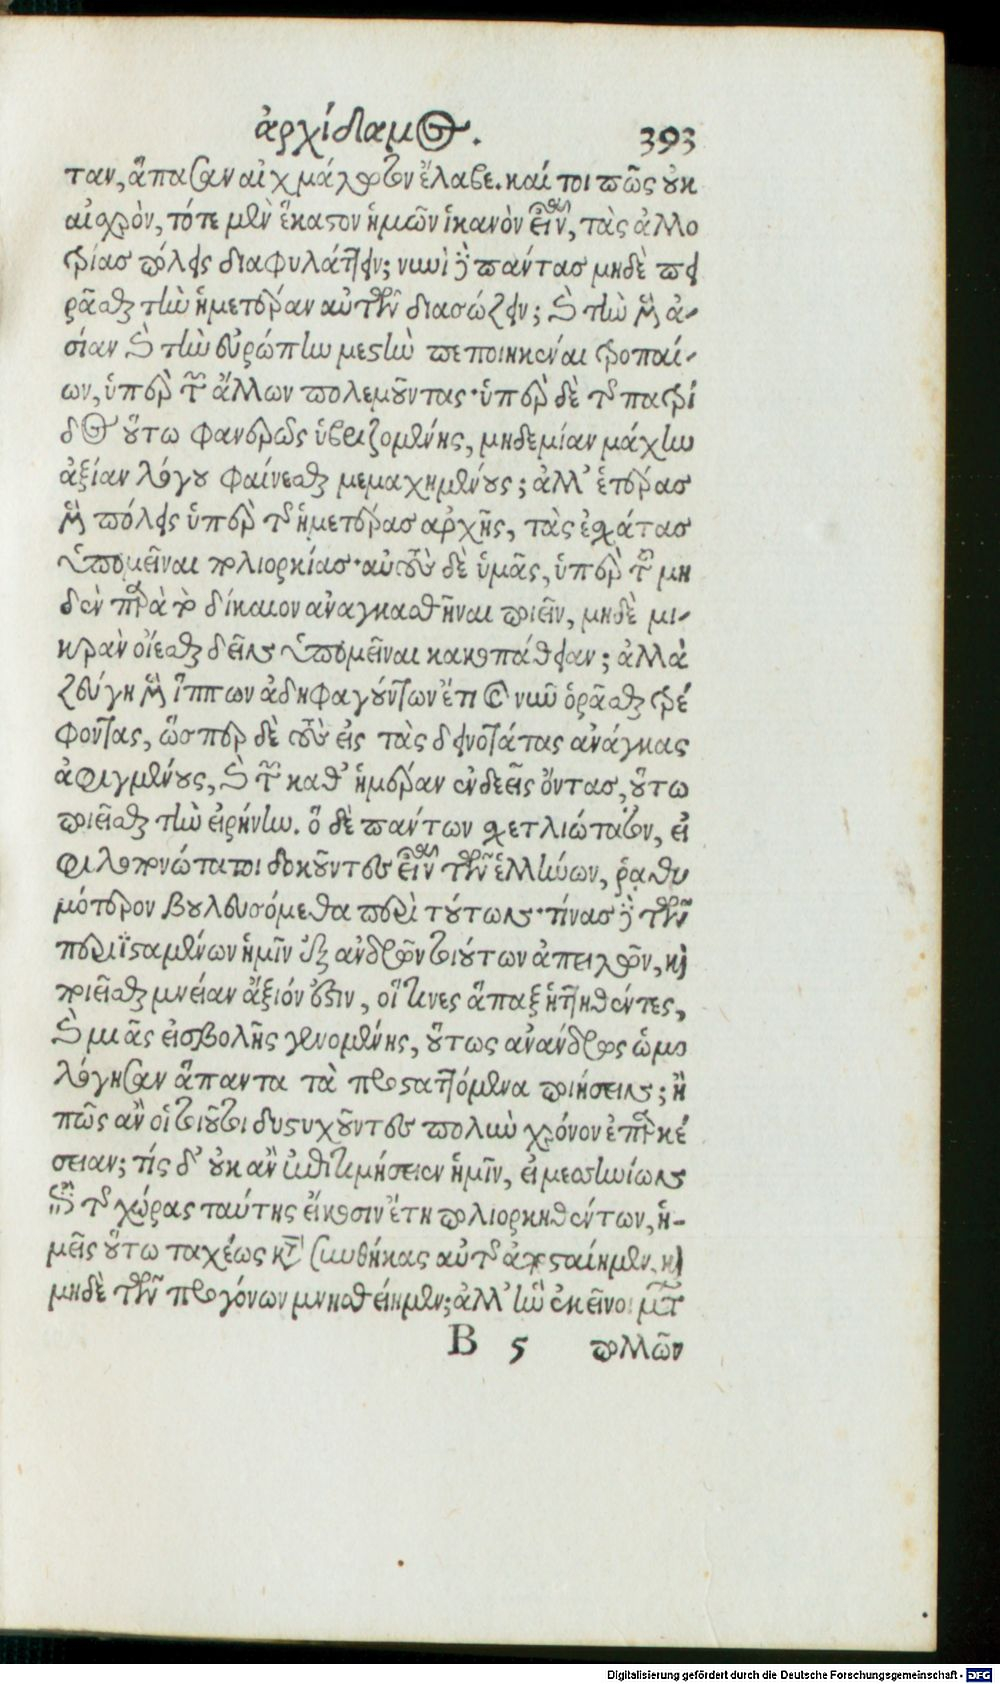 ἀρχίδαμος. 393
ταν, ἅπασαν αἰχμάλωτον ἔλαβε. καί τοι πῶς οὐκ
αἰσχρὸν, τότε μὲν ἕκαστον ἡμῶν ἱκανὸν εἶναι, τὰς ἀλλο
τρίας πόλεις διαφυλάττειν; νυνὶ δὲ πάντας μηδὲ πει
ρᾶσθαι τὴν ἡμετέραν αὐτῶν διασώζειν; καὶ τὴν μὲν ἀ-
σίαν καὶ τὴν εὐρώπην μεστὴν πεποιηκέναι τροπαί-
ων, ὑπὲρ τῶν ἄλλων πολεμοῦντας· ὑπὲρ δὲ τῆς πατρί
δος οὕτω φανερῶς ὑβριζομένης, μηδεμίαν μάχην
ἀξίαν λόγου φαίνεσθαι μεμαχημένους; ἀλλ' ἑτέρας
μὲν πόλεις ὑπὲρ τῆς ἡμετέρας ἀρχῆς, τὰς ἐσχάτας
ὑπομεῖναι πολιορκίας· αὐτοὺς δὲ ὑμᾶς, ὑπὲρ τοῦ μη
δὲν παρὰ τὸ δίκαιον ἀναγκασθῆναι ποιεῖν, μηδὲ μι-
κρὰν οἴεσθαι δεῖν ὑπομεῖναι κακοπάθειαν; ἀλλὰ
ζεύγη μὲν ἵππων ἀδηφαγούντων ἔτι καὶ νῦν ὁρᾶσθαι τρέ
φοντας, ὥσπερ δὲ τοὺς εἰς τὰς δεινοτάτας ἀνάγκας
ἀφιγμένους, καὶ τῶν καθ' ἡμέραν ἐνδεεῖς ὄντας, οὕτω
ποιεῖσθαι τὴν εἰρήνην. ὃ δὲ πάντων σχετλιώτατον, εἰ
φιλοπονώτατοι δοκοῦντες εἶναι τῶν ἑλλήνων, ῥᾳθυ
μότερον βουλευσόμεθα περὶ τούτων· τίνας δὲ τῶν
περιϊσταμένων ἡμῖν ἐξ ἀνδρῶν τοιούτων ἀπειλῶν, καὶ
ποιεῖσθαι μνείαν ἄξιόν ἐστιν, οἵ τινες ἅπαξ ἡττηθέντες,
καὶ μιᾶς εἰσβολῆς γενομένης, οὕτως ἀνάνδρως ὡμο
λόγησαν ἅπαντα τὰ προσταττόμενα ποιήσειν; ἢ
πῶς ἂν οἱ τοιοῦτοι δυστυχοῦντες πολὺν χρόνον ἐπαρκέ
σειαν; τίς δ' οὐκ ἂν ἐπιτιμήσειεν ἡμῖν, εἰ μεσσηνίων
ὑπὲρ τῆς χώρας ταύτης εἴκοσιν ἔτη πολιορκηθέντων, ἡ-
μεῖς οὕτω ταχέως κατὰ συνθήκας αὐτῆς ἀποσταίημεν, καὶ
μηδὲ τῶν προγόνων μνησθείημεν; ἀλλ' ἣν ἐκεῖνοι μετὰ
B 5 πολλῶν
Digitalisierung gefördert durch die Deutsche Forschungsgemeinschaft - DFG